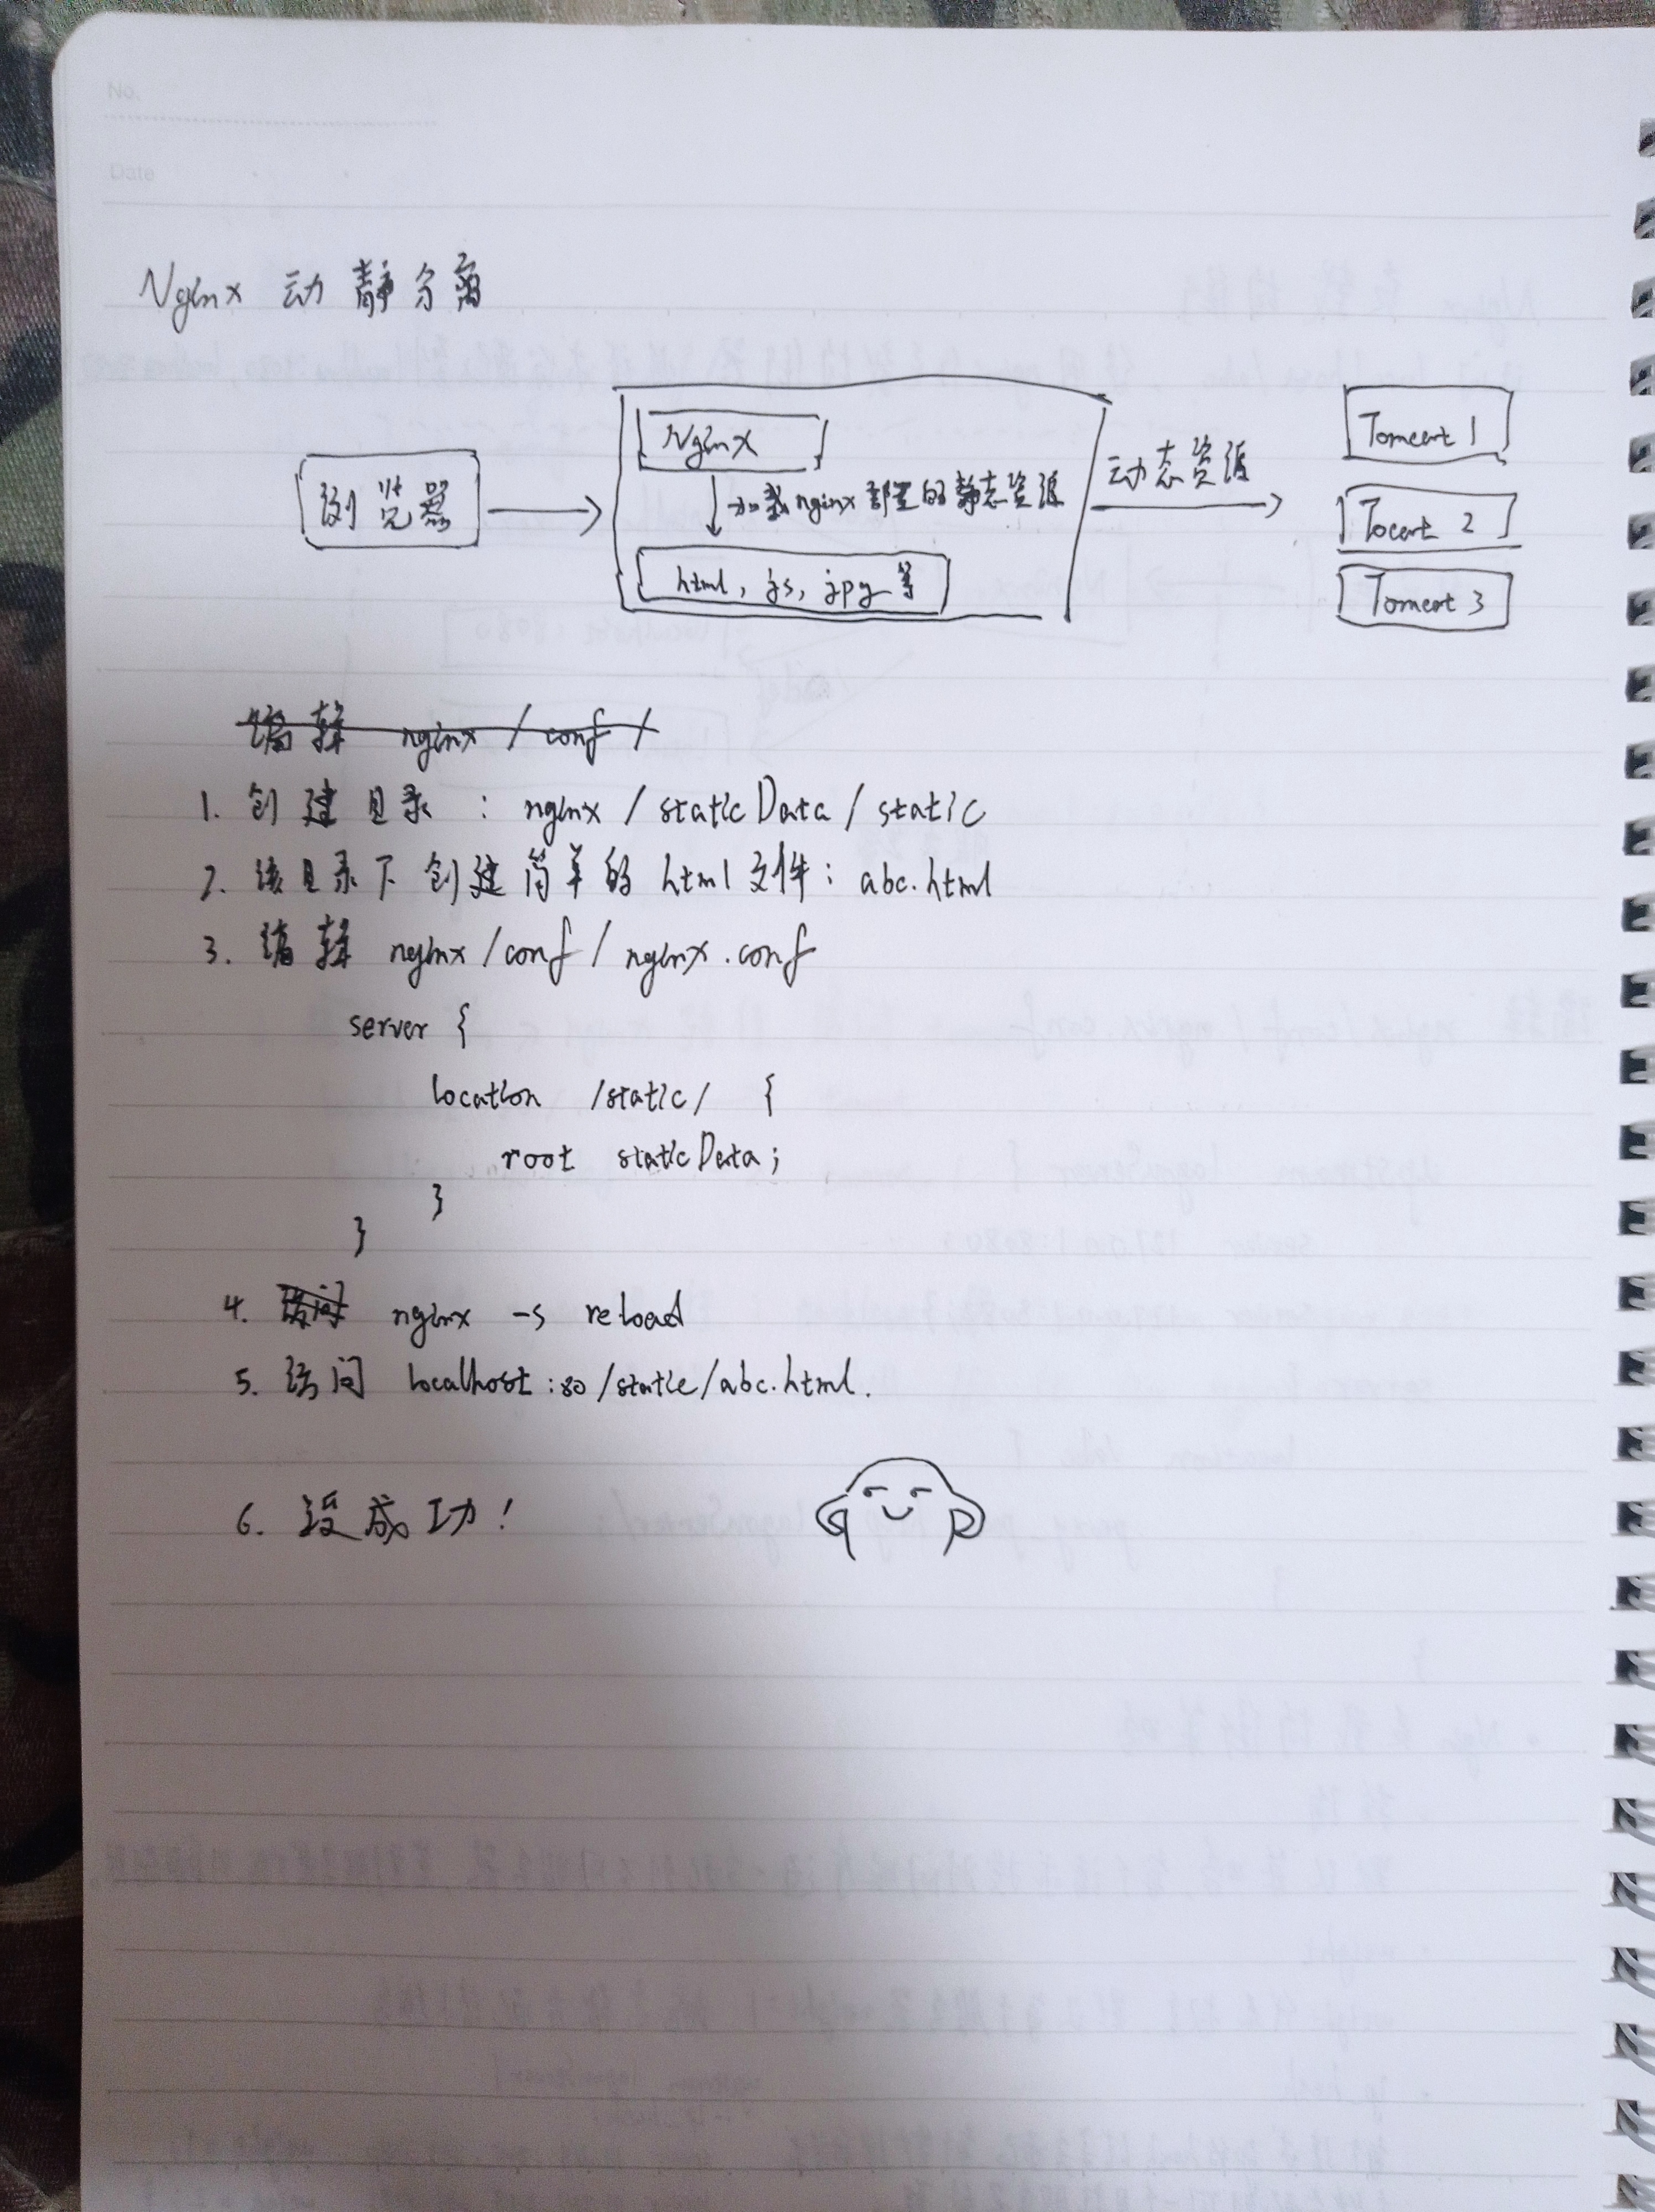 No.
Date
Nginx 动静分离
浏览器
Nginx
加载nginx部署的静态资源
html, js, jpg 等
动态资源
Tomcat 1
Tocat 2
Tomcat 3
编辑 nginx / conf /
1. 创建目录 : nginx / staticData / static
2. 该目录下创建简单的 html 文件: abc.html
3. 编辑 nginx / conf / nginx.conf
server {
location /static/ {
root staticData;
}
}
4. 访问 nginx -s reload
5. 访问 localhost:80/static/abc.html.
6. 没成功!